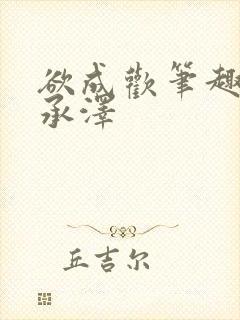 欲成歡筆趣
承澤
丘吉尔